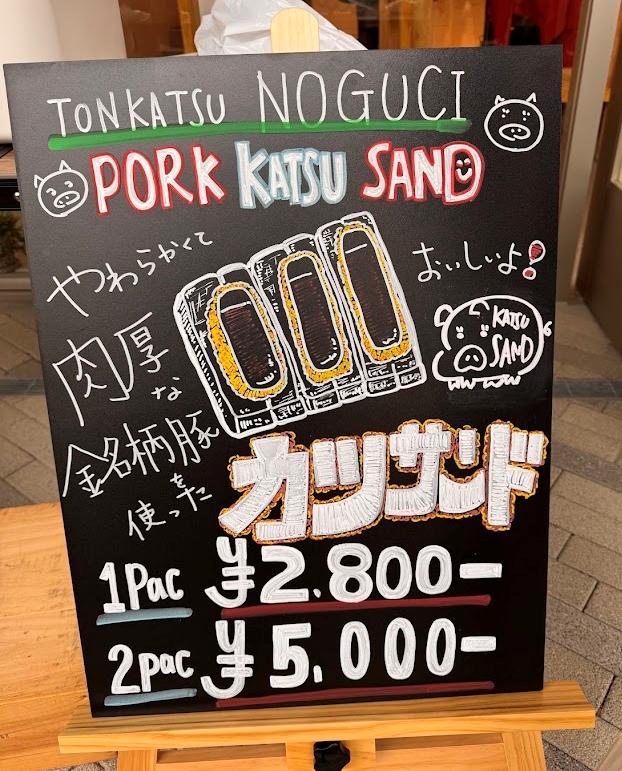 TONKATSU NOGUCI
PORK KATSU SAND
やわらかくて
おいしいよ!
肉厚な
KATSU
SAND
銘柄豚を
使った
カツサンド
1Pac ¥2.800-
2pac ¥5,000-